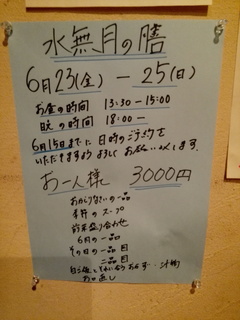 水無月の膳
6月23(金)－25(日)
お昼の時間 13:30－15:00
晩の時間 18:00－
6月15日までに日時のご予約を
いただきますようよろしくお願いします。
お一人様 3000円
おからないの一品
季節のスープ
前菜盛り合わせ
6月の一品
その日の一品目
二品目
お口直し